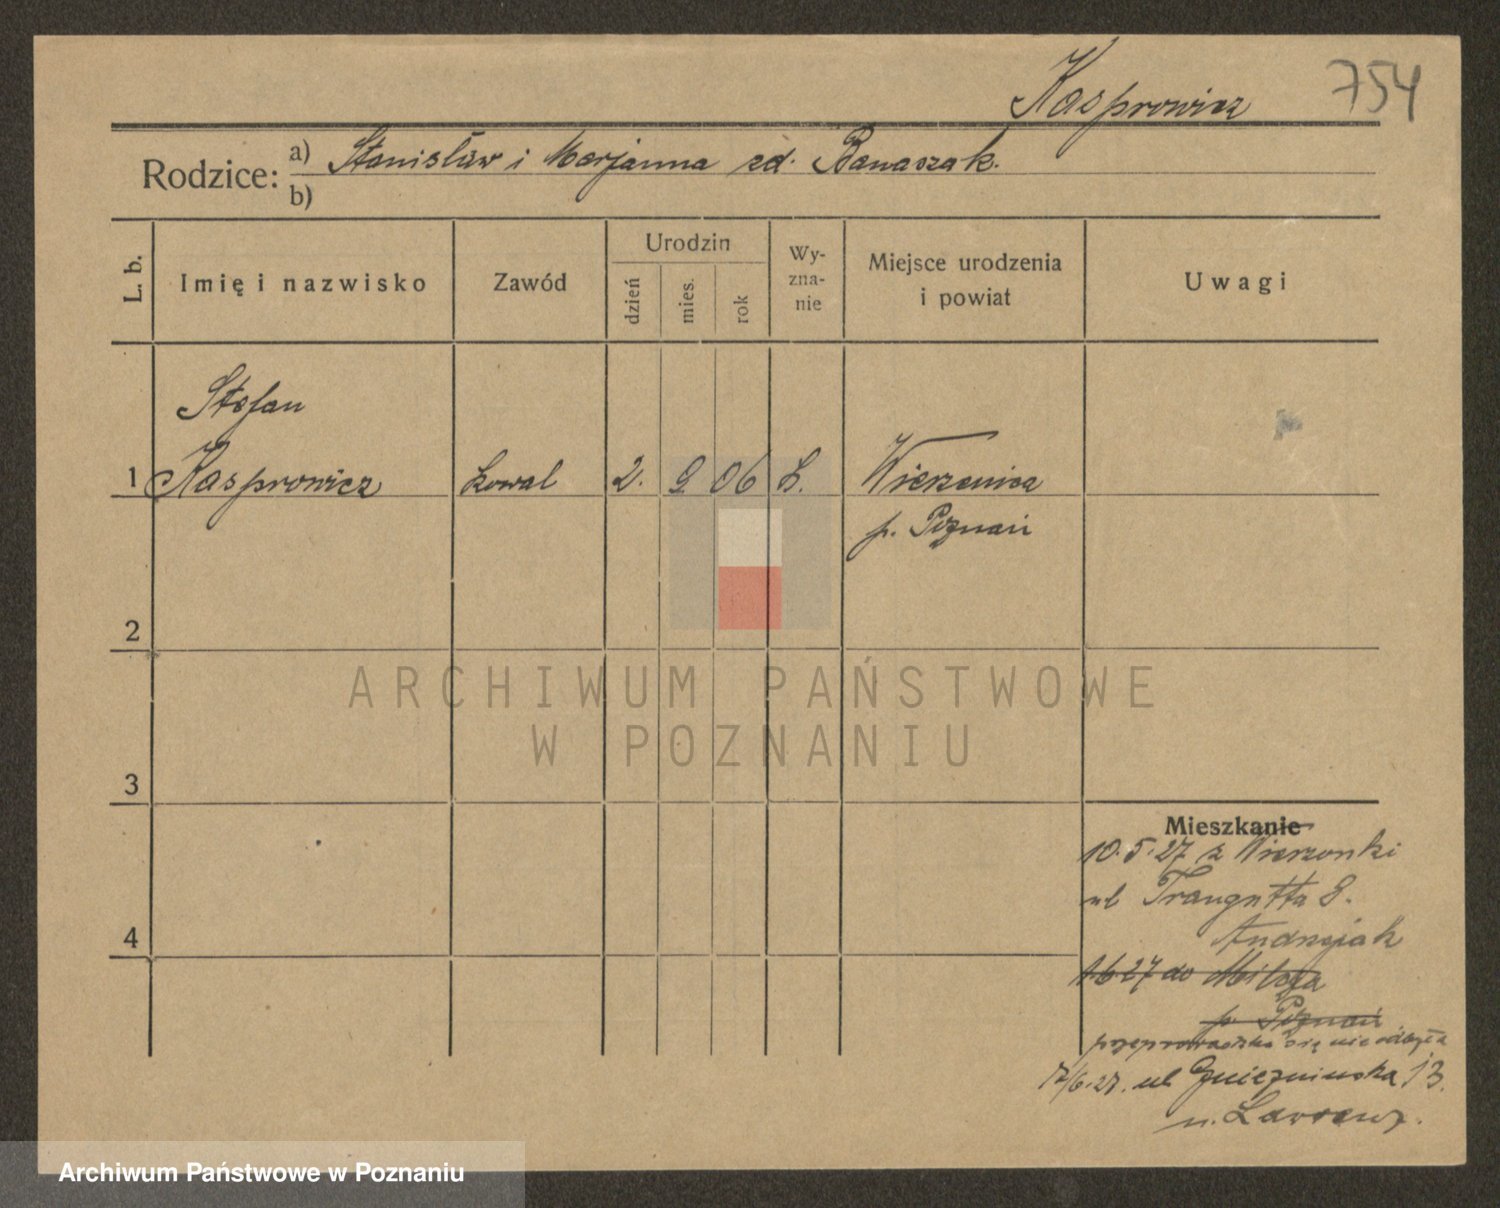 Kasprowicz 754
Rodzice: a) Stanisław i Marjanna zd. Banaszak.
b)
L. b. Imię i nazwisko Zawód Urodzin dzień mies. rok Wy-zna-nie Miejsce urodzenia i powiat Uwagi
Stefan
1 Kasprowicz kowal 2. 9 06 k. Wierzenica
p. Poznań
2
ARCHIWUM PAŃSTWOWE
W POZNANIU
3
Mieszkanie
10.5.27 z Wierzonki
ul Traugutta 8.
4 Andrzejak
1.6.27 do
p. Poznań
przeprowadzka się nie odbyła
ul Gnieźnieńska 13.
Archiwum Państwowe w Poznaniu